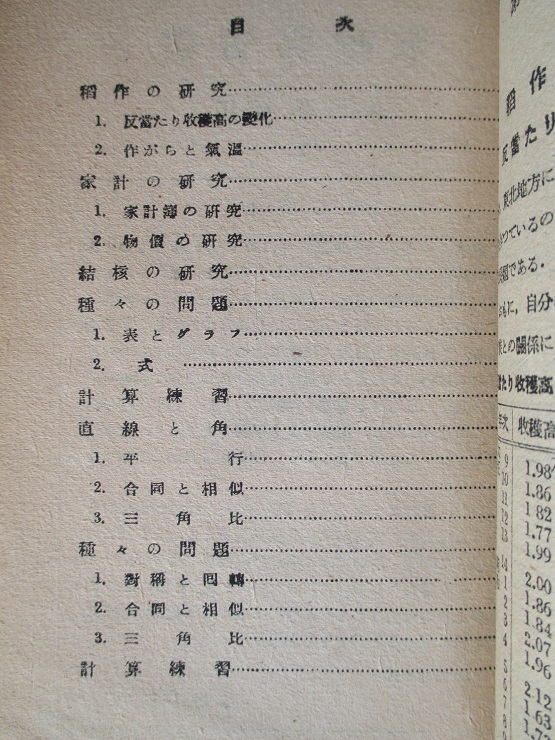 目次
稻作の研究
1. 反當たり收穫高の變化
2. 作がらと氣溫
家計の研究
1. 家計簿の研究
2. 物價の研究
結核の研究
種々の問題
1. 表とグラフ
2. 式
計算練習
直線と角
1. 平行
2. 合同と相似
3. 三角比
種々の問題
1. 對稱と回轉
2. 合同と相似
3. 三角比
計算練習
稻作
反當たり
東北地方に
ているの
問題である.
もに, 自分
との關係に
當たり收穫高
年次 收穫高
9 1.98
10 1.86
11 1.82
12 1.77
13 1.99
14 2.00
1 1.86
2 1.84
3 2.07
4 1.96
5 2.12
6 1.63